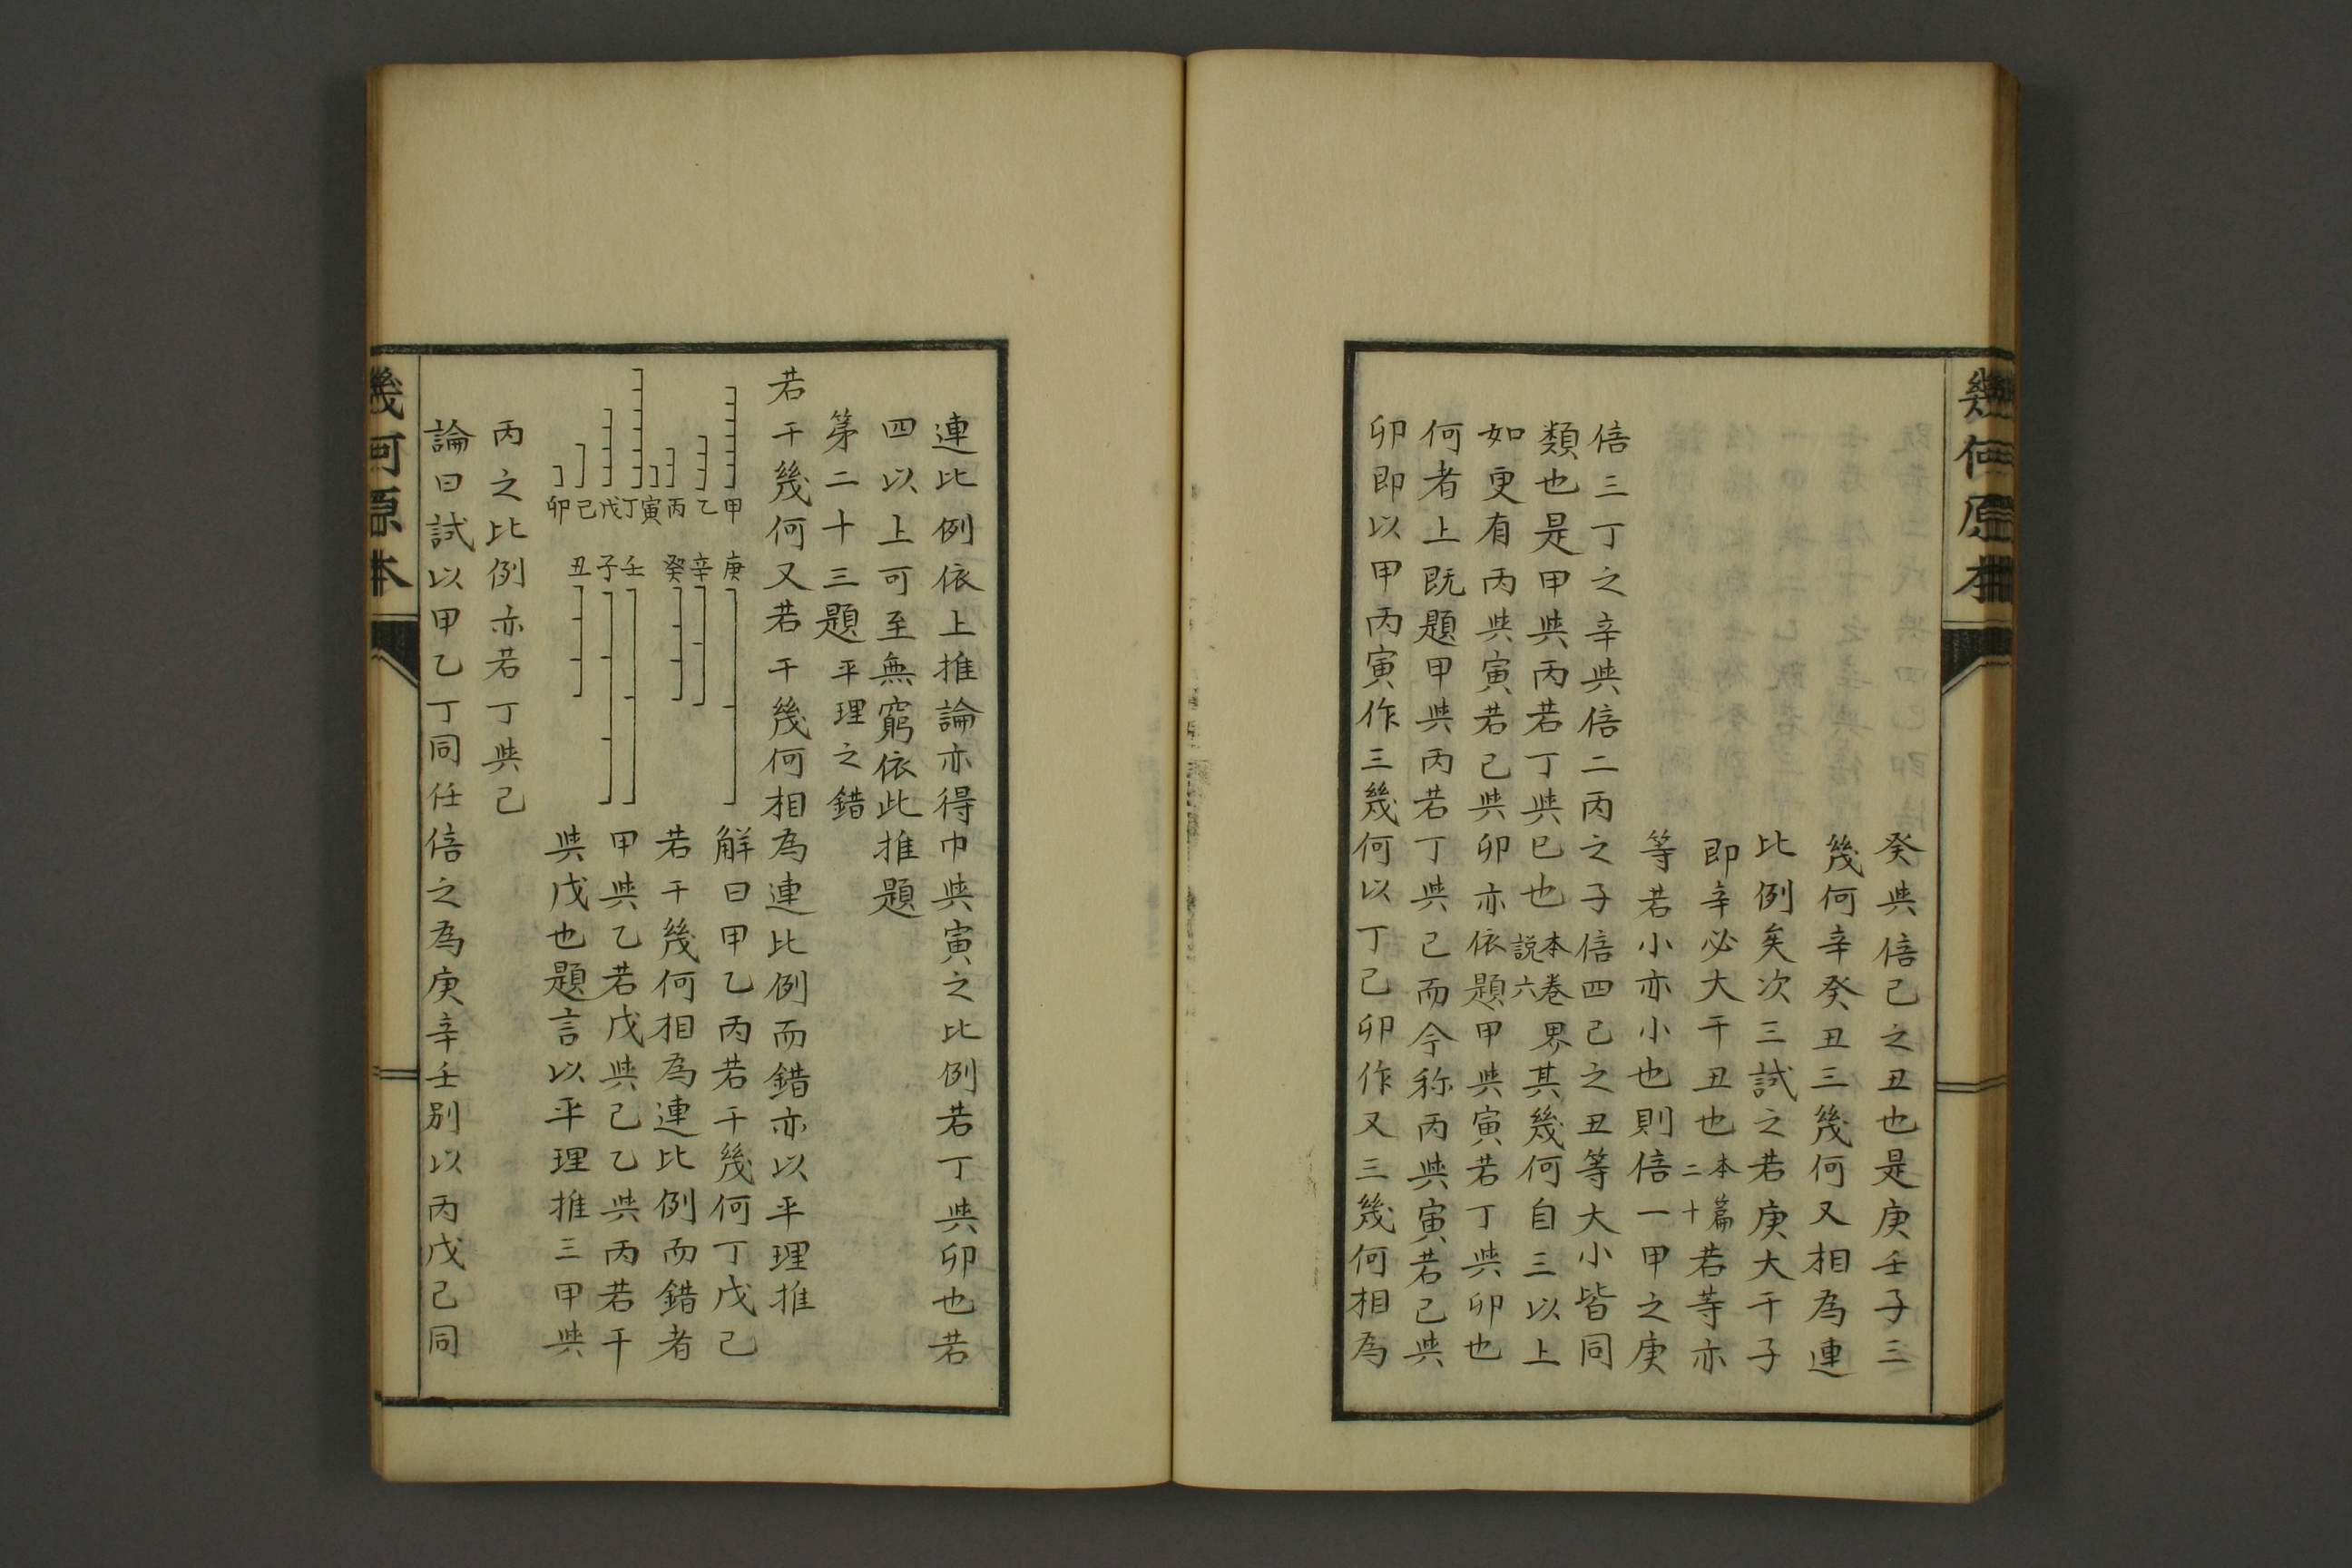 幾何原本
癸與倍己之丑也是庚壬子三
幾何辛癸丑三幾何又相為連
比例矣次三試之若庚大于子
即辛必大于丑也本篇二十若等亦
等若小亦小也則倍一甲之庚
倍三丁之辛與倍二丙之子倍四己之丑等大小皆同
類也是甲與丙若丁與巳也本卷說六界其幾何自三以上
如更有丙與寅若己與卯亦依題甲與寅若丁與卯也
何者上既題甲與丙若丁與己而今称丙與寅若己與
卯即以甲丙寅作三幾何以丁己卯作又三幾何相為
連比例依上推論亦得巾與寅之比例若丁與卯也若
四以上可至無窮依此推題
第二十三題平理之錯
若干幾何又若干幾何相為連比例而錯亦以平理推
甲乙丙寅丁戊己卯
庚辛癸壬子丑
解曰甲乙丙若干幾何丁戊己
若干幾何相為連比例而錯者
甲與乙若戊與己乙與丙若干
與戊也題言以平理推三甲與
丙之比例亦若丁與己
論曰試以甲乙丁同任倍之為庚辛壬別以丙戊己同
幾何原本